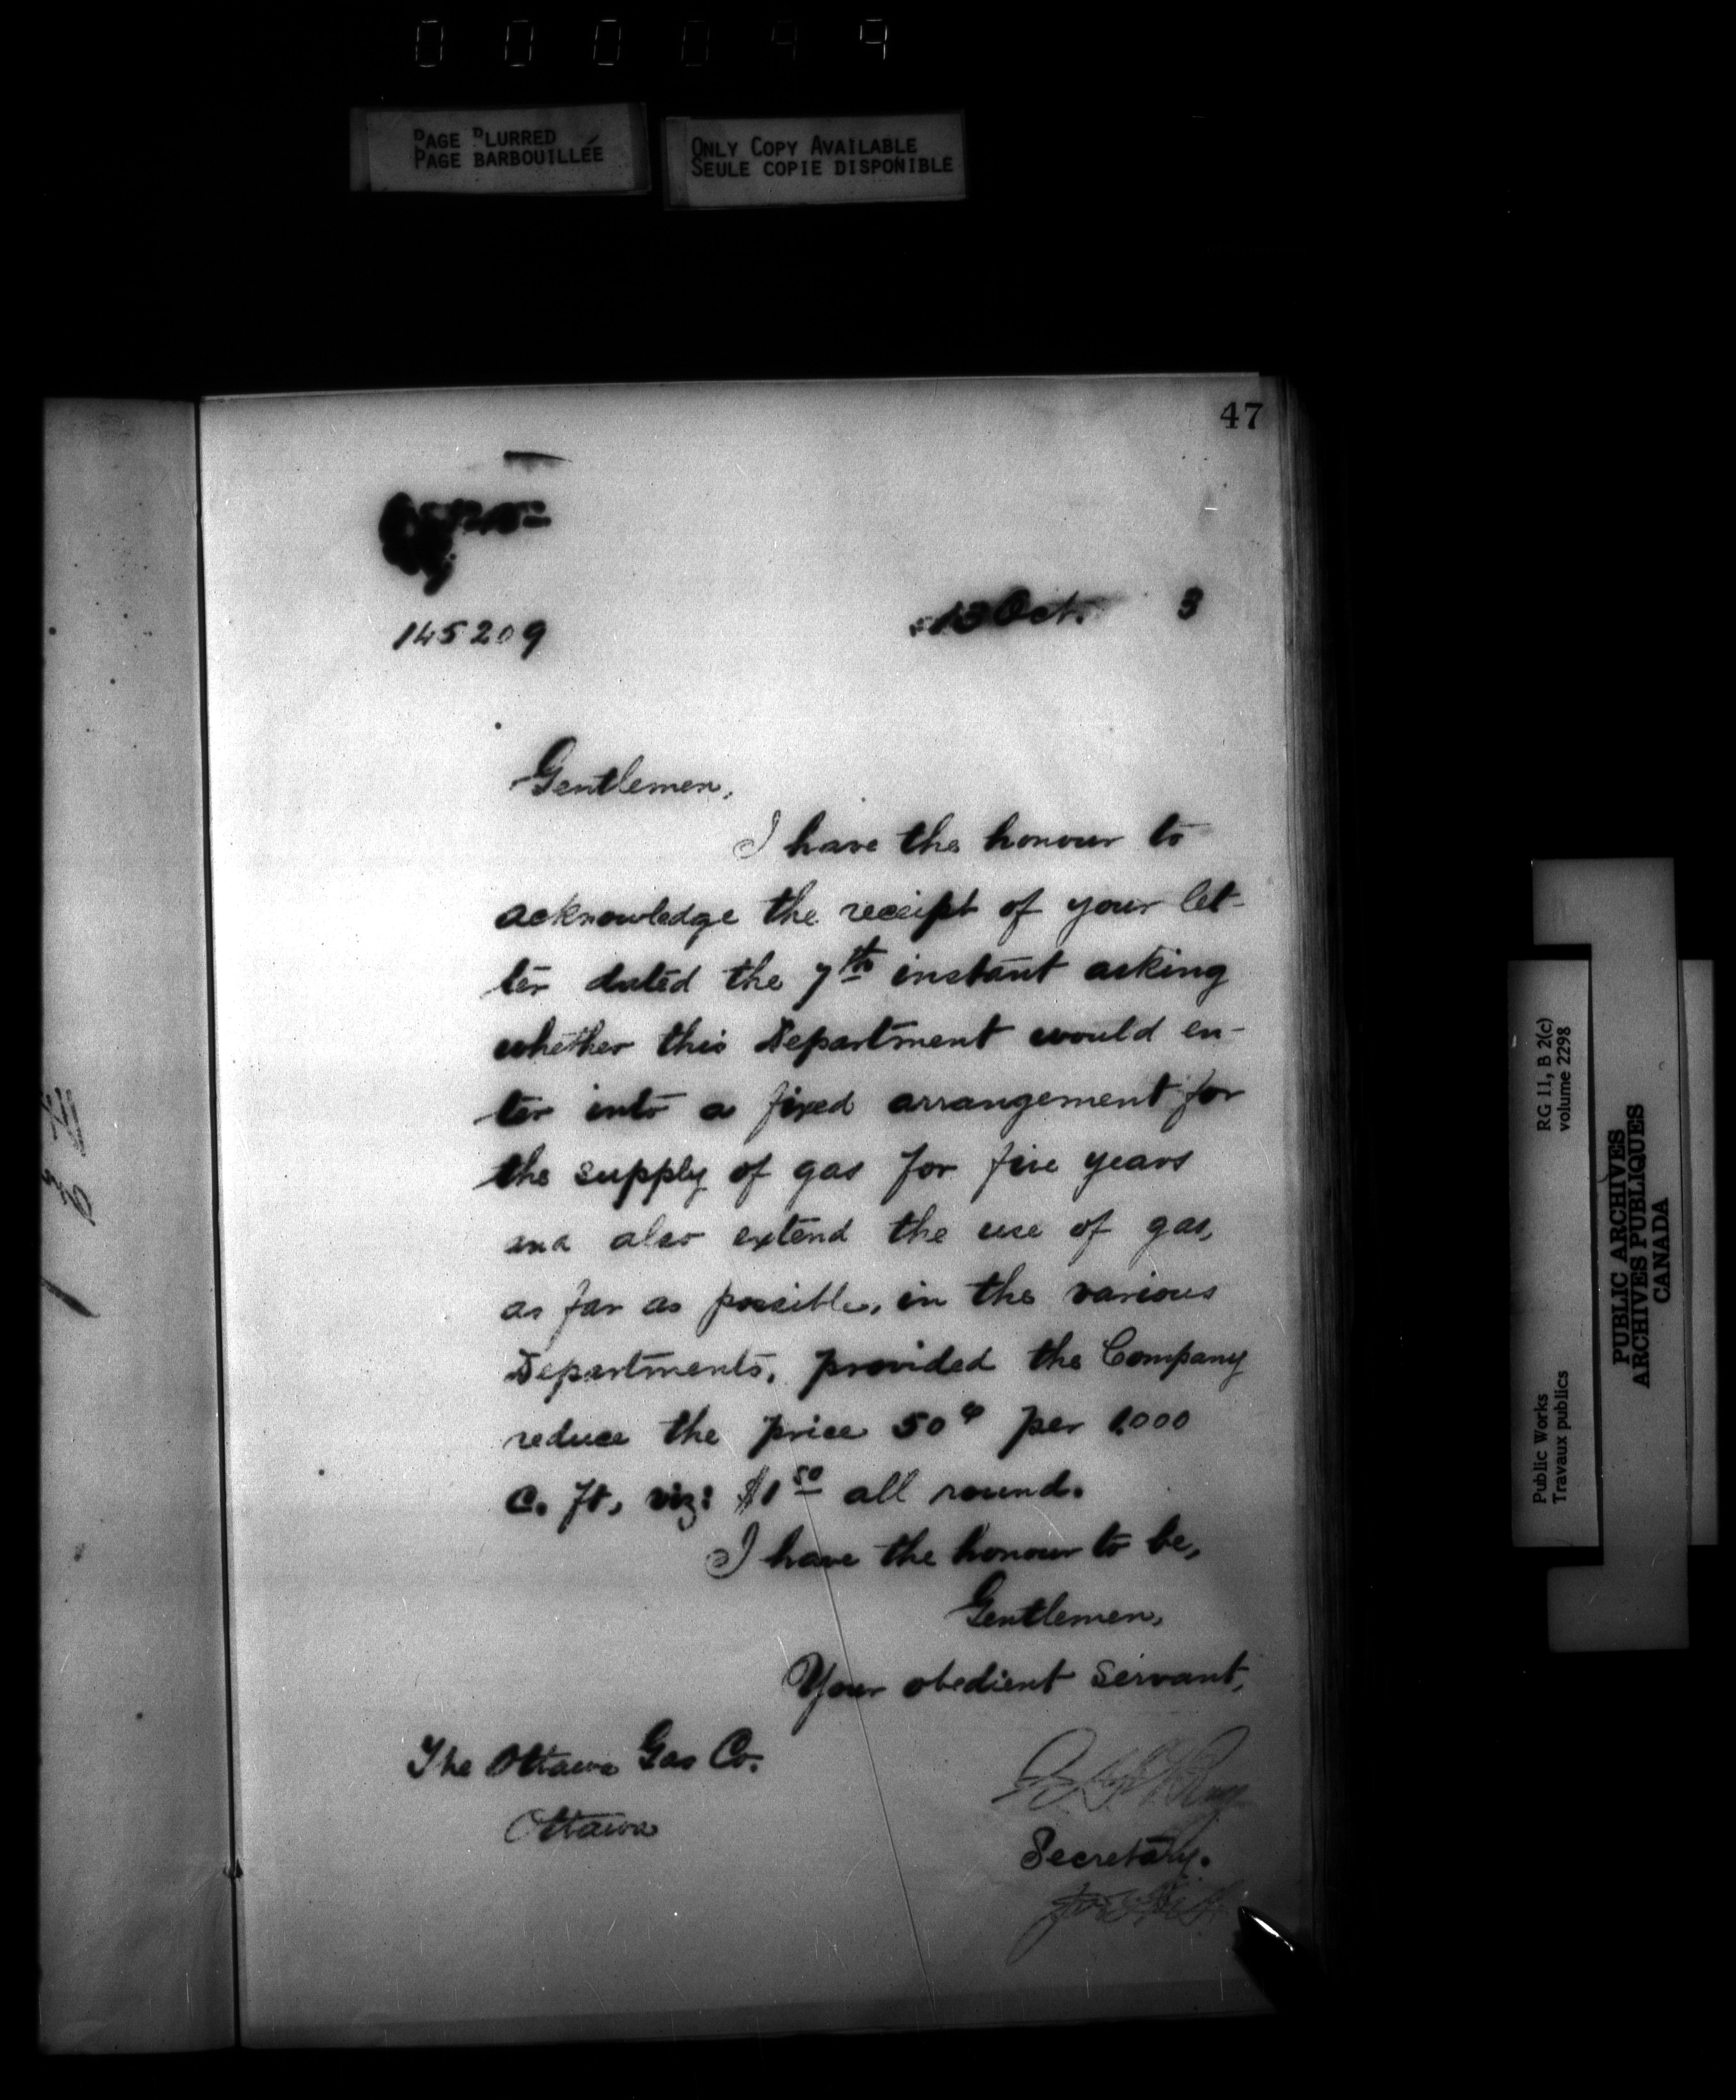 0 0 0 0 9 9
PAGE BLURRED
PAGE BARBOUILLÉE
ONLY COPY AVAILABLE
SEULE COPIE DISPONIBLE
47
145209
13 Oct. 3
Gentlemen,
I have the honour to
acknowledge the receipt of your let-
ter dated the 7th instant asking
whether this Department would en-
ter into a fixed arrangement for
the supply of gas for five years
and also extend the use of gas,
as far as possible, in the various
Departments, provided the Company
reduce the price 50¢ per 1,000
C. ft, viz: $1 50 all round.
I have the honour to be,
Gentlemen,
Your obedient servant,
The Ottawa Gas Co.
Ottawa
Secretary.
Public Works
Travaux publics
RG 11, B 2(c)
volume 2298
PUBLIC ARCHIVES
ARCHIVES PUBLIQUES
CANADA